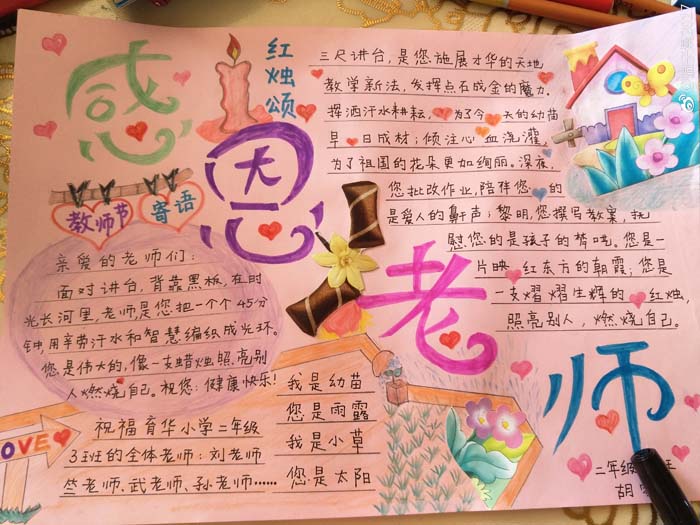 感恩老师
红烛颂
三尺讲台，是您施展才华的天地
教学新法，发挥点石成金的魔力。
挥洒汗水耕耘，为了今天的幼苗
早日成材；倾注心血浇灌，
为了祖国的花朵更加绚丽。深夜，
您批改作业，陪伴您的
是爱人的鼾声；黎明，您撰写教案，抚
慰您的是孩子的梦呓。您是一
片映红东方的朝霞；您是
一支熠熠生辉的红烛，
照亮别人，燃烧自己。
教师节
寄语
亲爱的老师们：
面对讲台，背靠黑板，在时
光长河里，老师，是您把一个个45分
钟，用辛劳汗水和智慧编织成光环。
您是伟大的，像一支蜡烛照亮别
人燃烧自己。祝您：健康快乐！
LOVE
祝福育华小学二年级
3班的全体老师：刘老师
老师、武老师、孙老师……
我是幼苗
您是雨露
我是小草
您是太阳
二年级
胡